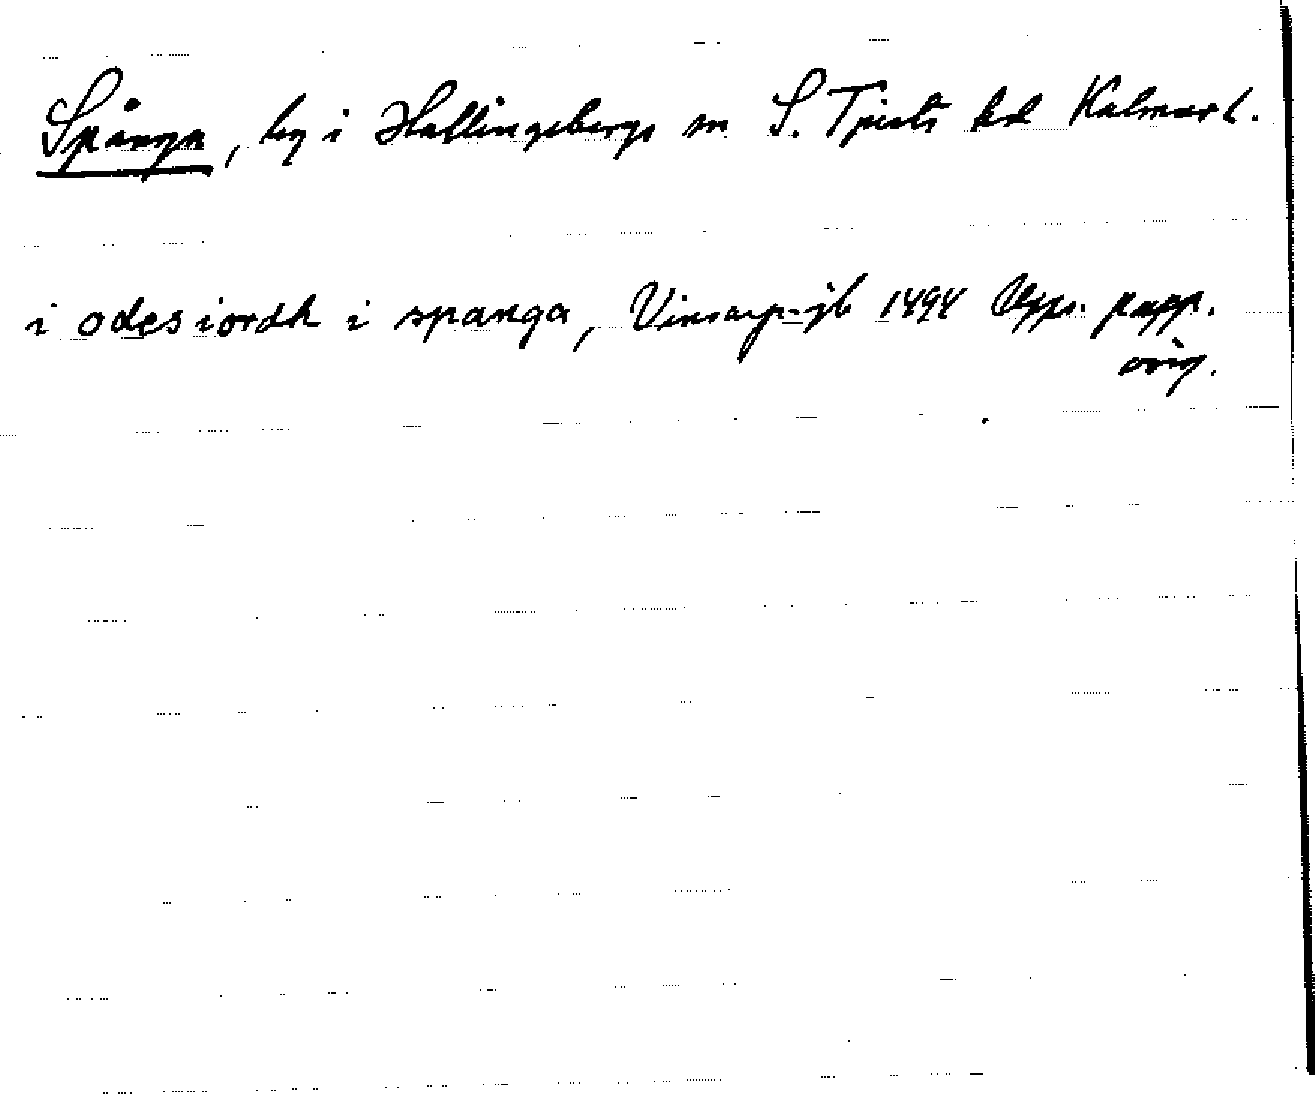 Spånga, by i Hallingebergs sn S. Tjusts hd Kalmar l.
i odes iordh i spanga, Vinsarp-jb 1494 Upps. papp.
orig.